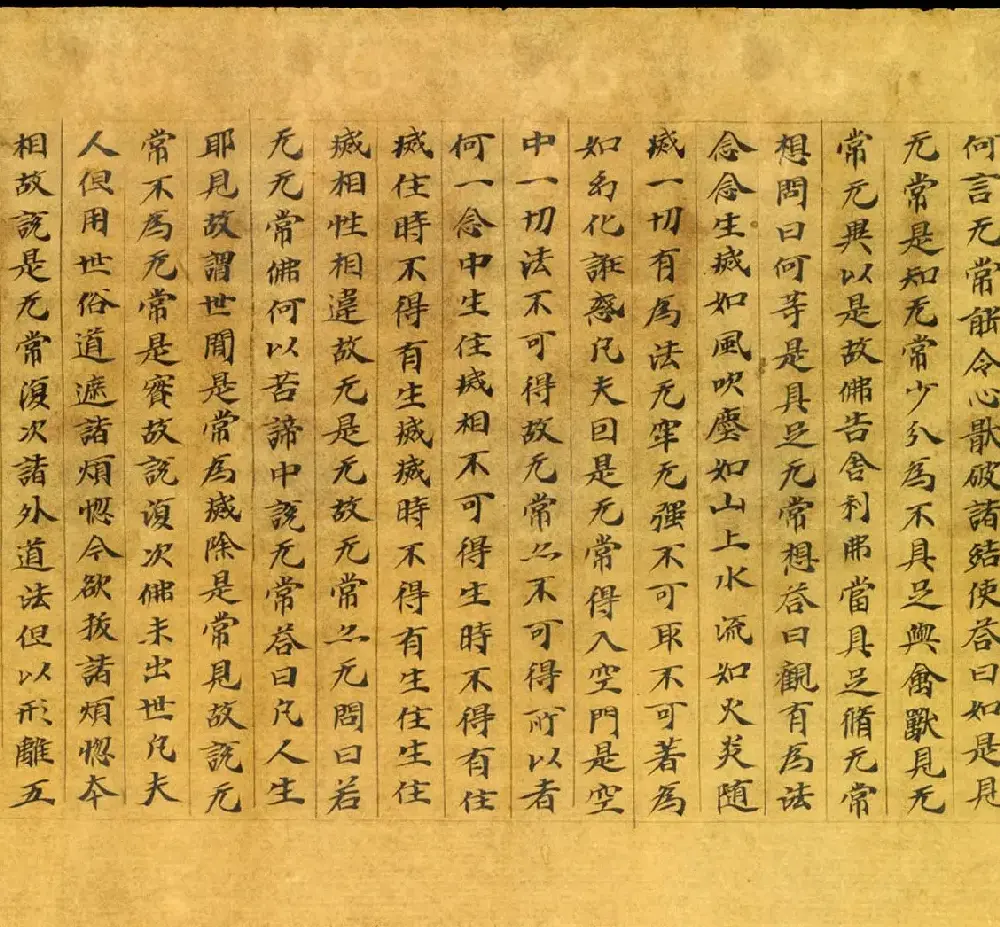 何言无常能令心猒破諸結使答曰如是見
无常是知无常少分為不具足與禽獸見无
常无異以是故佛告舍利弗當具足脩无常
想問曰何等是具足无常想答曰觀有為法
念念生滅如風吹塵如山上水流如火炎随
滅一切有為法无牢无强不可取不可著為
如幻化誑惑凡夫因是无常得入空門是空
中一切法不可得故无常亦不可得所以者
何一念中生住滅相不可得生時不得有住
滅住時不得有生滅滅時不得有生住生住
滅相性相違故无是无故无常亦无問曰若
无无常佛何以苦諦中説无常答曰凡人生
耶見故謂世間是常為滅除是常見故説无
常不為无常是實故説復次佛未出世凡夫
人但用世俗道遮諸煩惱今欲拔諸煩惱本
相故説是无常復次諸外道法但以形離五